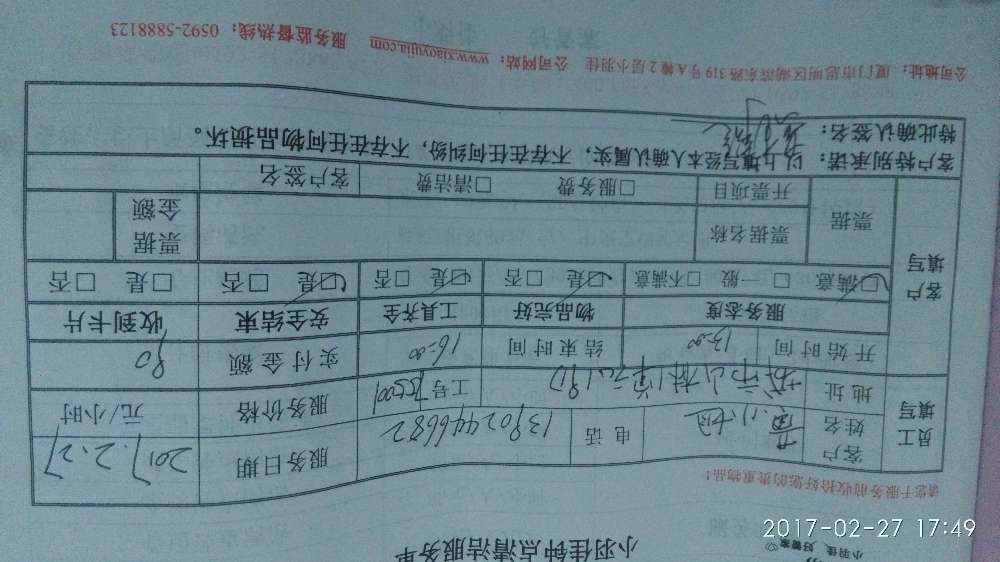 小羽佳 好管家
小羽佳钟点清洁服务单
请您于服务前收拾好您的贵重物品！
员工填写
客户姓名 小姐 电话 13902446682 服务日期 2017.2.27
地址 城市山林 工号 服务价格 元/小时
开始时间 13:00 结束时间 16:00 实付金额 90
服务态度 物品完好 工具齐全 安全结束 收到卡片
客户填写
☑满意 □一般 □不满意 ☑是 □否 ☑是 □否 ☑是 □否 □是 □否
票据 票据名称 票据金额
开票项目 □服务费 □清洁费 客户签名
客户特别承诺：以上填写经本人确认属实，不存在任何纠纷，不存在任何物品损坏。
特此确认签名：
公司地址：厦门市思明区湖滨东路319号A幢2层小羽佳 公司网站：www.xiaoyujia.com 服务监督热线：0592-5888123
2017-02-27 17:49